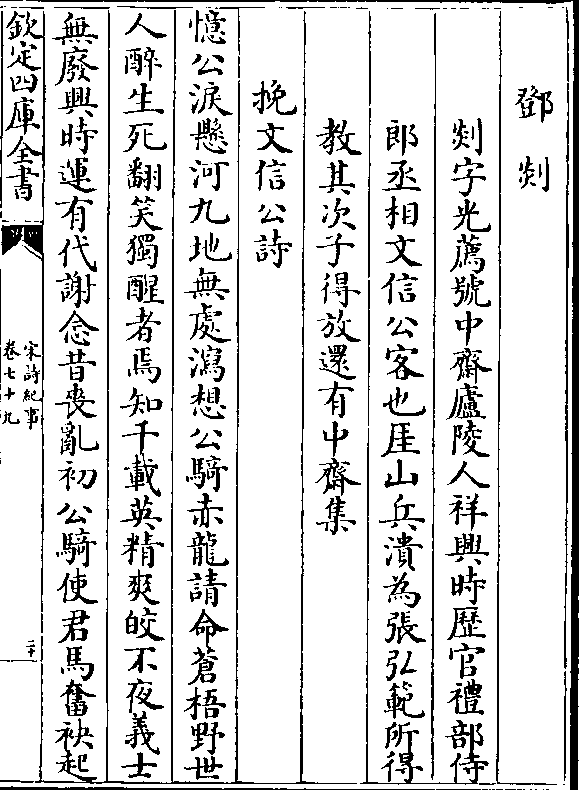 鄧剡
剡字光薦號中齋廬陵人祥興時歷官禮部侍
郎丞相文信公客也厓山兵潰為張弘範所得
教其次子得放還有中齋集
挽文信公詩
憶公淚懸河九地無處瀉想公騎赤龍請命蒼梧野世
人醉生死翻笑獨醒者焉知千載英精爽皎不夜義士
無廢興時運有代謝念昔喪亂初公騎使君馬奮袂起
欽定四庫全書
宋詩紀事
卷七十九
二十